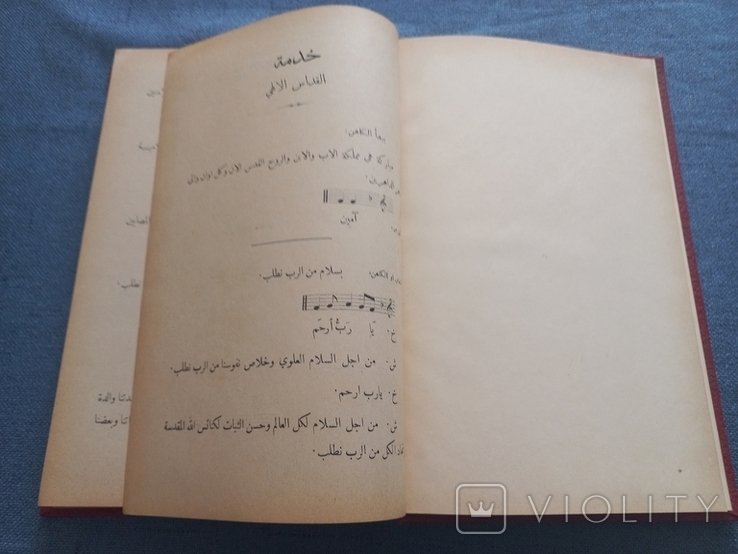 خدمة
القداس الالهي
يبدأ الكاهن:
مباركة هي مملكة الاب والابن والروح القدس الآن وكل اوان والى
آمين
او الكاهن: بسلام من الرب نطلب.
خ. يَا رَبُّ أرحَم
ش. من اجل السلام العلوي وخلاص نفوسنا من الرب نطلب.
خ. يارب ارحم.
ش. من اجل السلام لكل العالم وحسن الثبات لكنائس الله المقدسة
الكل من الرب نطلب.
نطلب.
والدة
وبعضنا
VIOLITY